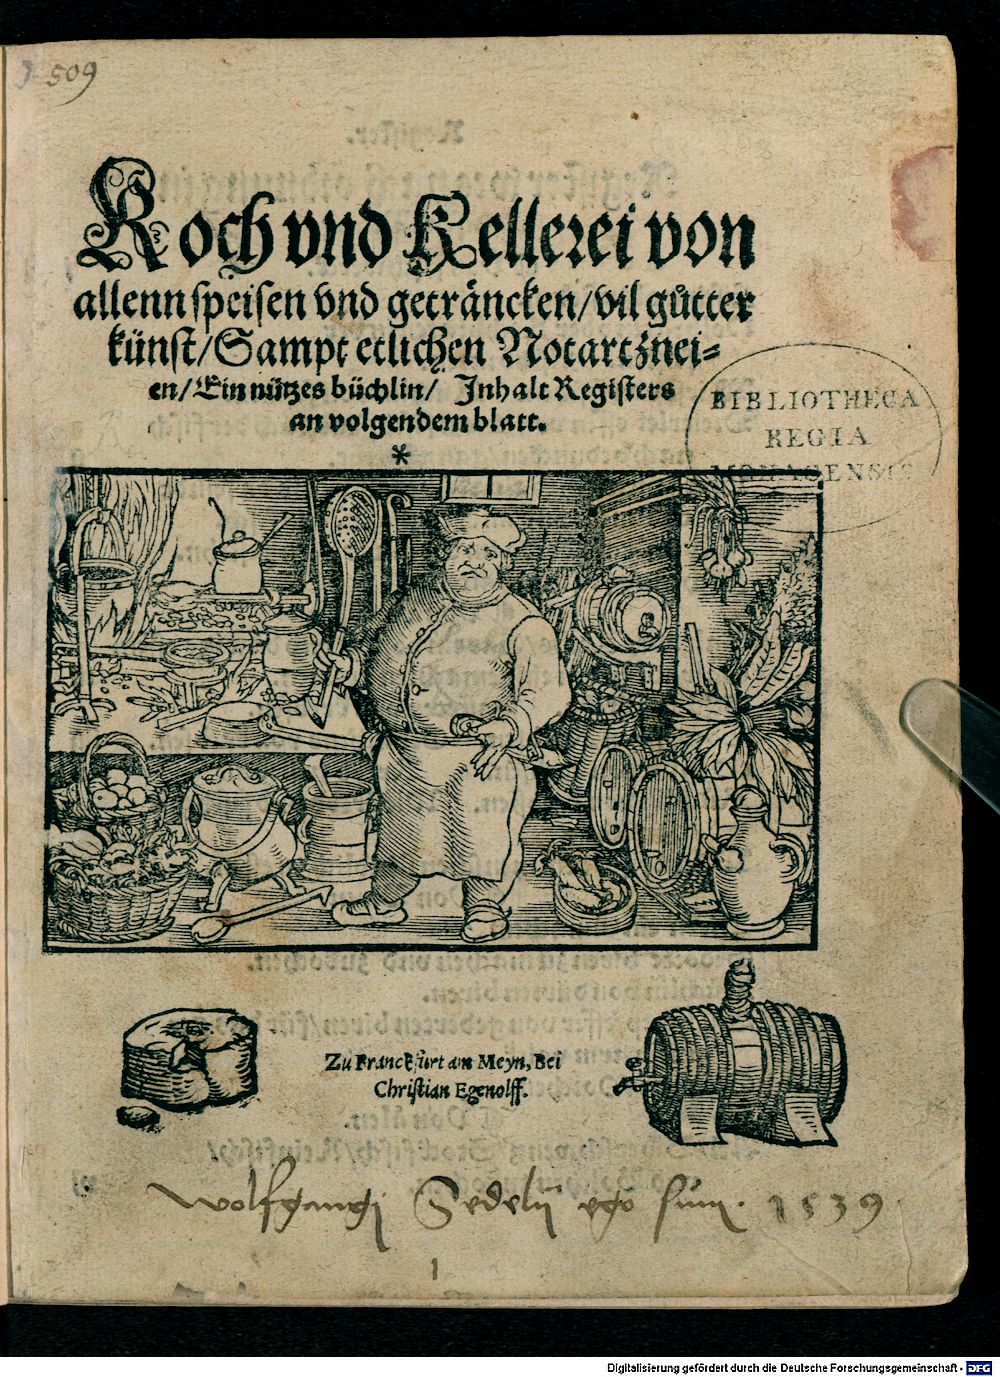 509
Koch vnd Kellerei von
allenn speisen vnd geträncken/vil gůtter
künst/Sampt etlichen Notartznei-
en/Ein nützes büchlin/ Inhalt Registers
an volgendem blatt.
*
BIBLIOTHECA
REGIA
MONACENSIS
Zu Franckfurt am Meyn, Bei
Christian Egenolff.
Wolfgangi Sedelij ego sum. 1539
1
Digitalisierung gefördert durch die Deutsche Forschungsgemeinschaft - DFG